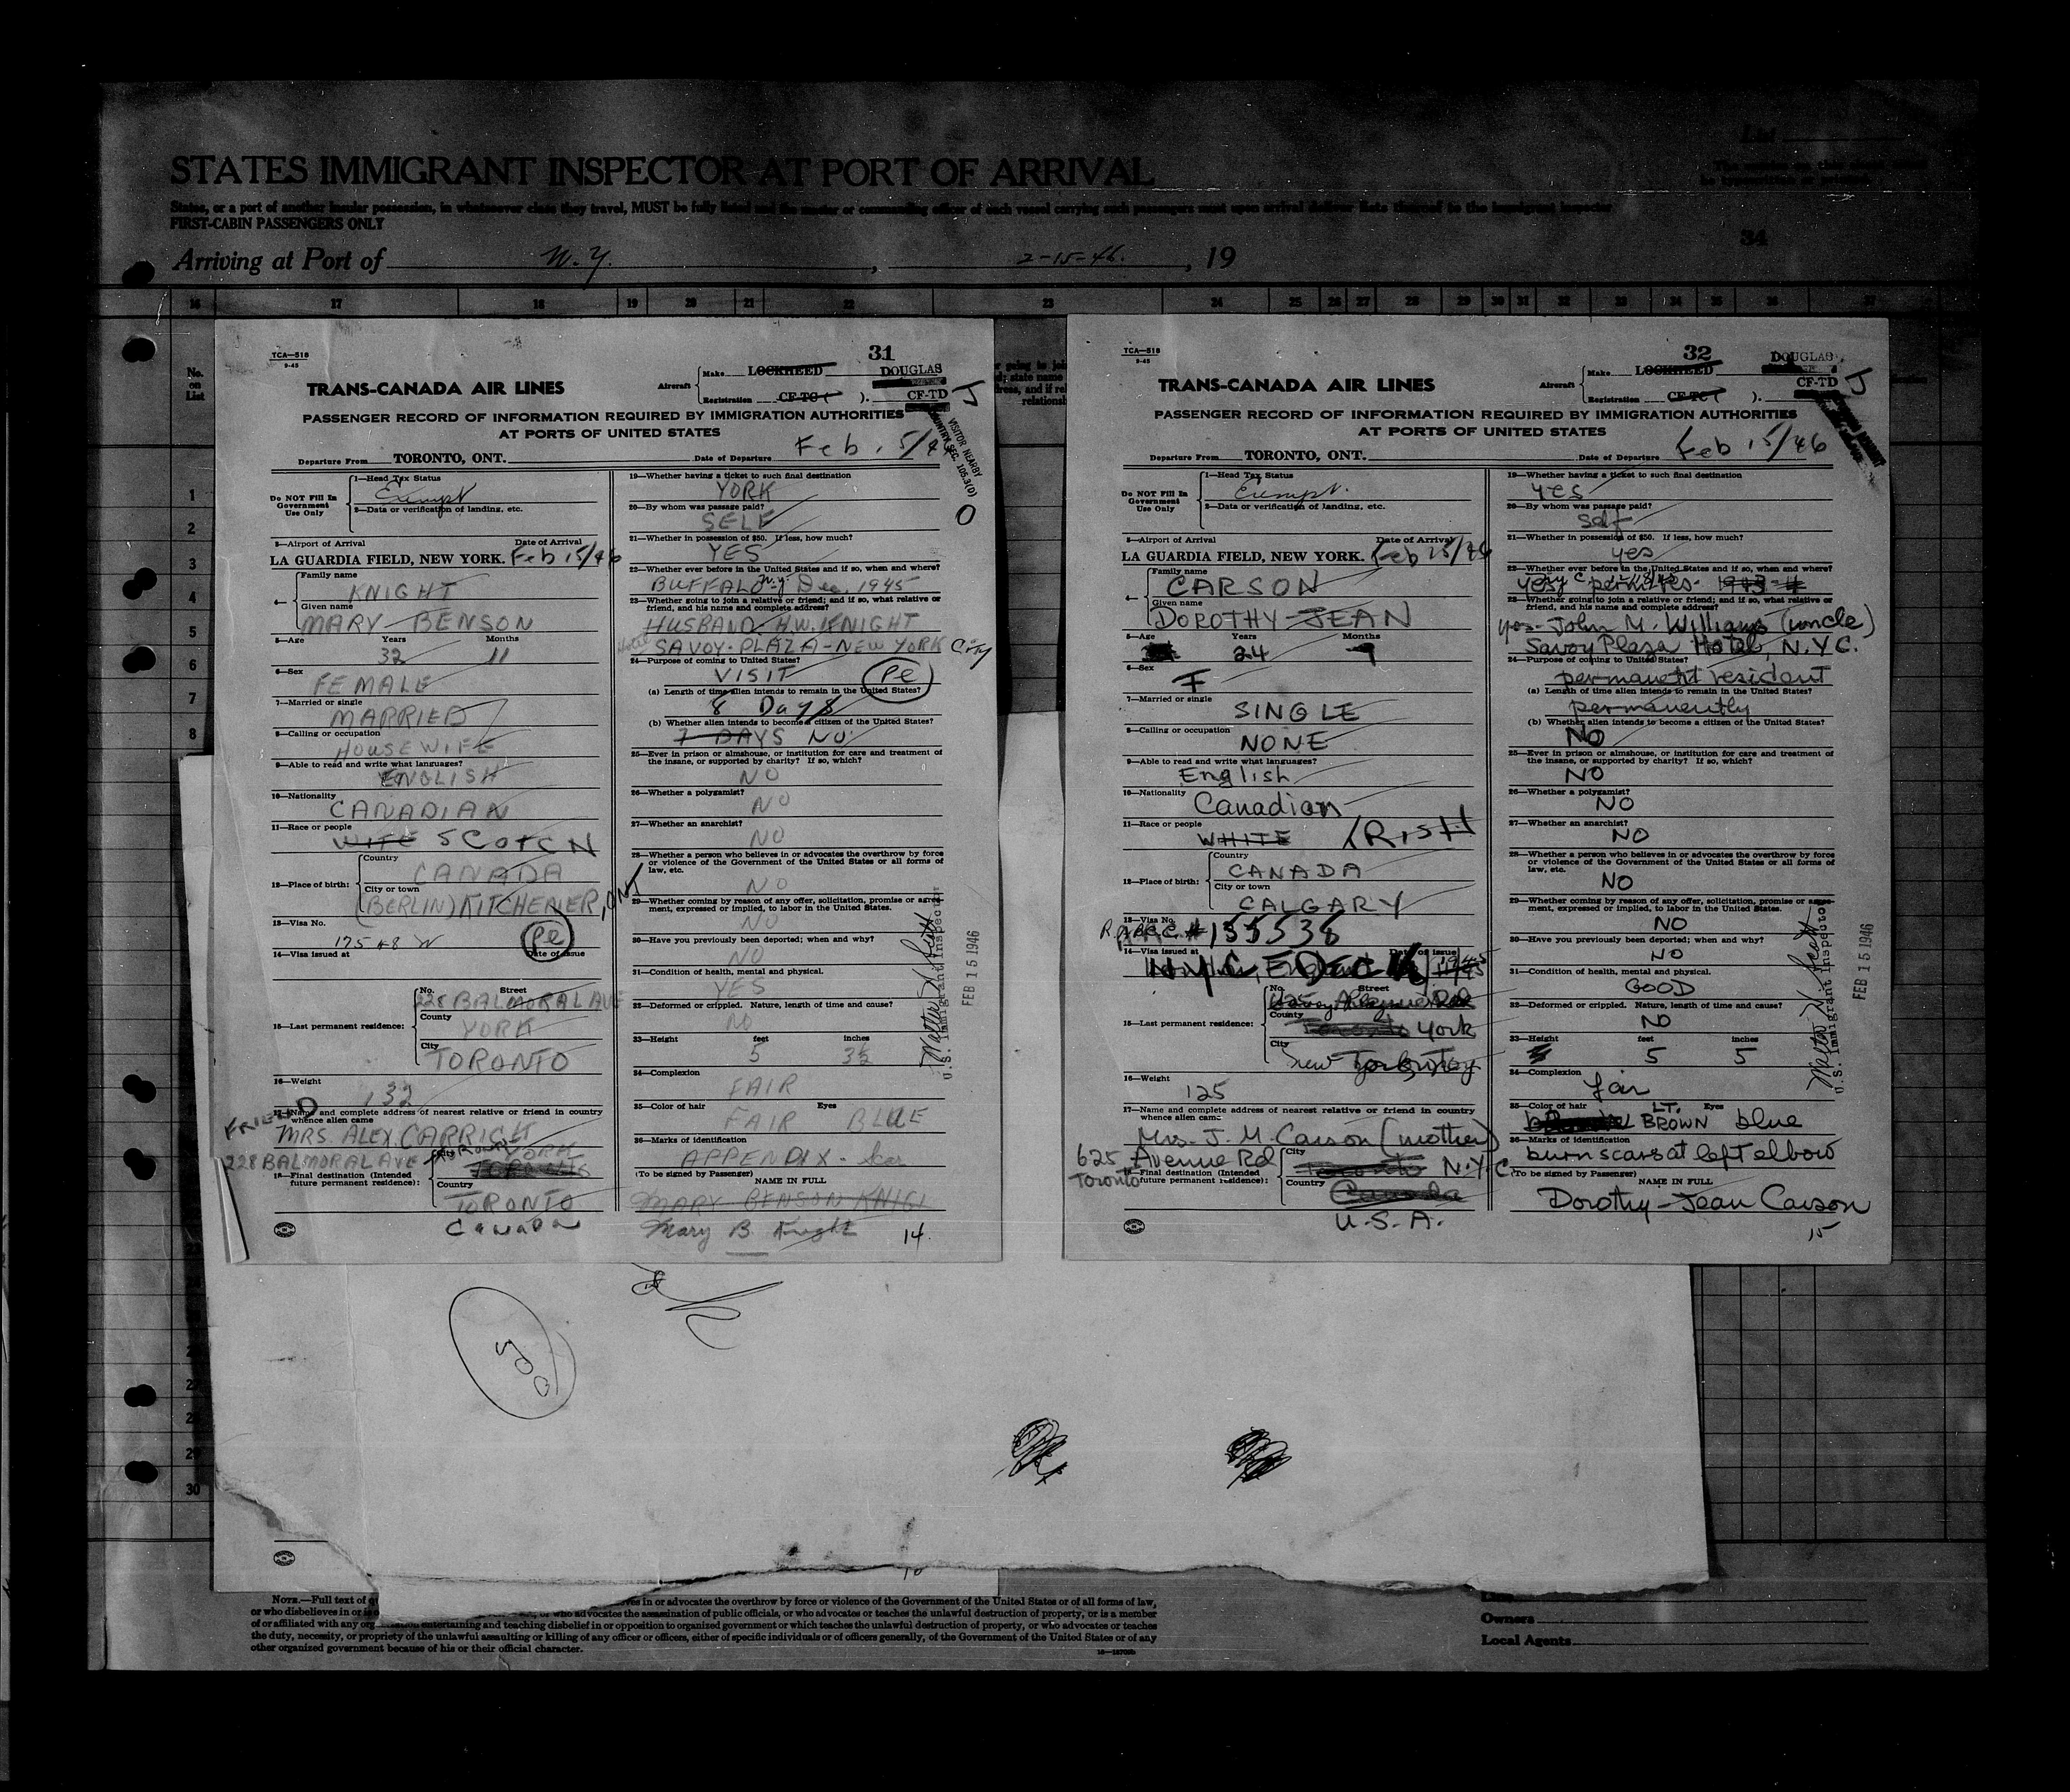 STATES IMMIGRANT INSPECTOR AT PORT OF ARRIVAL
States, or a port of another insular possession, in whatsoever class they travel, MUST be fully listed and the master or commanding officer of each vessel carrying such passengers must upon arrival deliver lists thereof to the immigrant inspector
FIRST-CABIN PASSENGERS ONLY
List
34
Arriving at Port of N.Y. , 2-15-46. , 19
16 17 18 19 20 21 22 23 24 25 26 27 28 29 30 31 32 33 34 35 36 37
No. on List
1
2
3
4
5
6
7
8
TCA—518
9-45
31
TRANS-CANADA AIR LINES
Aircraft Make LOCKHEED DOUGLAS
Registration CF-TC ( ). CF-TD
J
PASSENGER RECORD OF INFORMATION REQUIRED BY IMMIGRATION AUTHORITIES
AT PORTS OF UNITED STATES
VISITOR NEARBY
COUNTRY SEC. 105.3(D)
O
Departure From TORONTO, ONT. Date of Departure Feb. 15/46
Do NOT Fill In Government Use Only
1—Head Tax Status
Exempt
2—Data or verification of landing, etc.
3—Airport of Arrival Date of Arrival
LA GUARDIA FIELD, NEW YORK. Feb 15/46
4— Family name
KNIGHT
Given name
MARY BENSON
5—Age Years Months
32 11
6—Sex
FEMALE
7—Married or single
MARRIED
8—Calling or occupation
HOUSEWIFE
9—Able to read and write what languages?
ENGLISH
10—Nationality
CANADIAN
11—Race or people
WITE SCOTCH
12—Place of birth: Country
CANADA
City or town
(BERLIN) KITCHENER, ONT
13—Visa No.
17548 W
Pe
14—Visa issued at Date of issue
15—Last permanent residence: No. Street
228 BALMORAL AVE
County
YORK
City
TORONTO
16—Weight
132
FRIEND
17—Name and complete address of nearest relative or friend in country whence alien came
MRS. ALEX CARRICK
228 BALMORAL AVE
18—Final destination (Intended future permanent residence): City
YORK
TORONTO
Country
TORONTO
Canada
19—Whether having a ticket to such final destination
YORK
20—By whom was passage paid?
SELF
21—Whether in possession of $50. If less, how much?
YES
22—Whether ever before in the United States and if so, when and where?
BUFFALO N.Y. Dec. 1945
23—Whether going to join a relative or friend; and if so, what relative or friend, and his name and complete address?
HUSBAND H.W. KNIGHT
Hotel SAVOY-PLAZA - NEW YORK City
24—Purpose of coming to United States?
VISIT
Pe
(a) Length of time alien intends to remain in the United States?
8 Days
(b) Whether alien intends to become a citizen of the United States?
7 DAYS NO
25—Ever in prison or almshouse, or institution for care and treatment of the insane, or supported by charity? If so, which?
NO
26—Whether a polygamist?
NO
27—Whether an anarchist?
NO
28—Whether a person who believes in or advocates the overthrow by force or violence of the Government of the United States or all forms of law, etc.
NO
29—Whether coming by reason of any offer, solicitation, promise or agreement, expressed or implied, to labor in the United States.
NO
30—Have you previously been deported; when and why?
NO
31—Condition of health, mental and physical.
YES
32—Deformed or crippled. Nature, length of time and cause?
NO
33—Height feet inches
5 3½
34—Complexion
FAIR
35—Color of hair Eyes
FAIR BLUE
36—Marks of identification
APPENDIX - Scar
(To be signed by Passenger) NAME IN FULL
MARY BENSON KNIGHT
Mary B. Knight
14.
Walter N. Scott
U.S. Immigrant Inspector
FEB 15 1946
TCA—518
9-45
32
TRANS-CANADA AIR LINES
Aircraft Make LOCKHEED DOUGLAS
Registration CF-TC ( ). CF-TD
J
PASSENGER RECORD OF INFORMATION REQUIRED BY IMMIGRATION AUTHORITIES
AT PORTS OF UNITED STATES
Departure From TORONTO, ONT. Date of Departure Feb 15/46
Do NOT Fill In Government Use Only
1—Head Tax Status
Exempt.
2—Data or verification of landing, etc.
3—Airport of Arrival Date of Arrival
LA GUARDIA FIELD, NEW YORK. Feb 15/46
4— Family name
CARSON
Given name
DOROTHY-JEAN
5—Age Years Months
24 7
6—Sex
F
7—Married or single
SINGLE
8—Calling or occupation
NONE
9—Able to read and write what languages?
English
10—Nationality
Canadian
11—Race or people
WHITE IRISH
12—Place of birth: Country
CANADA
City or town
CALGARY
13—Visa No.
#155538
14—Visa issued at Date of issue
N.Y.C. DEC 1945
15—Last permanent residence: No. Street
625 Avenue Rd
County
Toronto York
City
New York City
16—Weight
125
17—Name and complete address of nearest relative or friend in country whence alien came
Mrs. J. M. Carson (mother)
625 Avenue Rd
Toronto
18—Final destination (Intended future permanent residence): City
Toronto N.Y.C.
Country
Canada
U.S.A.
19—Whether having a ticket to such final destination
yes
20—By whom was passage paid?
self
21—Whether in possession of $50. If less, how much?
yes
22—Whether ever before in the United States and if so, when and where?
yes
23—Whether going to join a relative or friend; and if so, what relative or friend, and his name and complete address?
yes- John M. Williams (uncle)
Savoy Plaza Hotel, N.Y.C.
24—Purpose of coming to United States?
permanent resident
(a) Length of time alien intends to remain in the United States?
permanently
(b) Whether alien intends to become a citizen of the United States?
NO
25—Ever in prison or almshouse, or institution for care and treatment of the insane, or supported by charity? If so, which?
NO
26—Whether a polygamist?
NO
27—Whether an anarchist?
NO
28—Whether a person who believes in or advocates the overthrow by force or violence of the Government of the United States or all forms of law, etc.
NO
29—Whether coming by reason of any offer, solicitation, promise or agreement, expressed or implied, to labor in the United States.
NO
30—Have you previously been deported; when and why?
NO
31—Condition of health, mental and physical.
GOOD
32—Deformed or crippled. Nature, length of time and cause?
NO
33—Height feet inches
5 5
34—Complexion
fair
35—Color of hair Eyes
LT. BROWN blue
36—Marks of identification
burn scars at left elbow
(To be signed by Passenger) NAME IN FULL
Dorothy-Jean Carson
15
Walter N. Scott
U.S. Immigrant Inspector
FEB 15 1946
29
30
10
NOTE.—Full text of
or who disbelieves in or is
of or affiliated with any org
entertaining and teaching disbelief in or opposition to organized government or which teaches the unlawful destruction of property, or who advocates or teaches
the duty, necessity, or propriety of the unlawful assaulting or killing of any officer or officers, either of specific individuals or of officers generally, of the Government of the United States or of any
other organized government because of his or their official character.
Owners
Local Agents